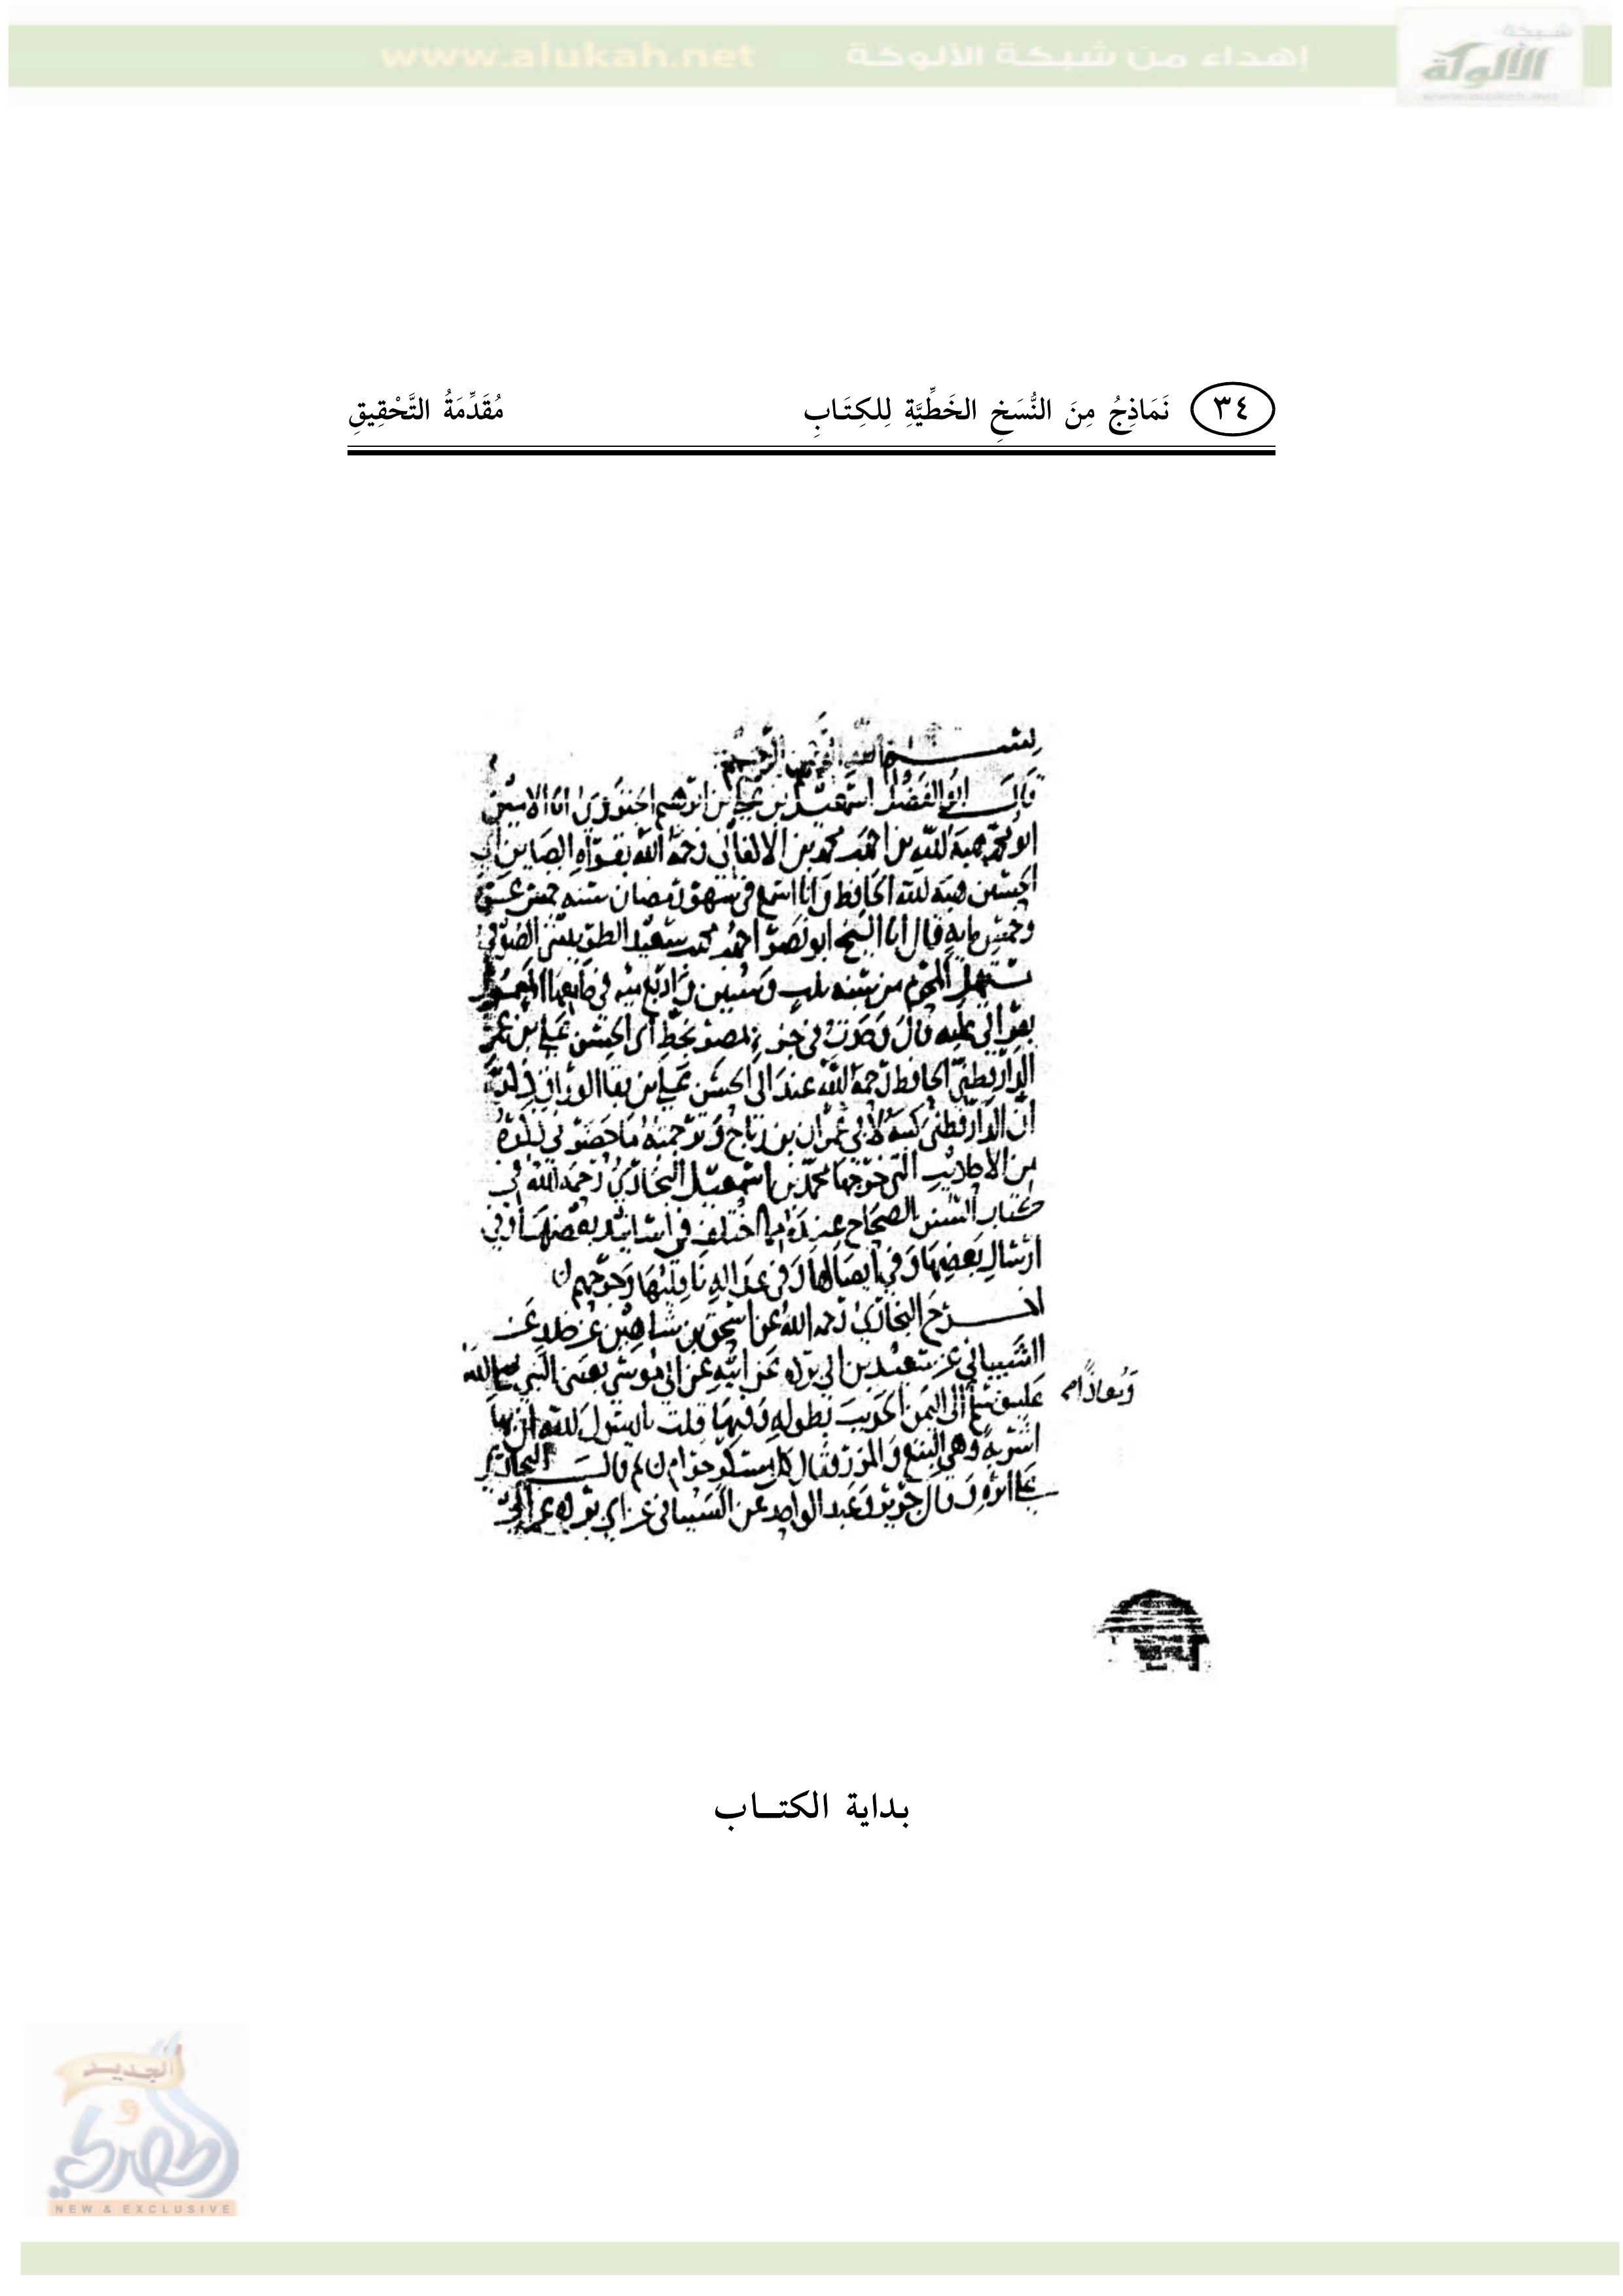 شبكة
الألوكة
www.alukah.net
إهداء من شبكة الألوكة
www.alukah.net
٣٤
نَمَاذِجُ مِنَ النُّسَخِ الخَطِّيَّةِ لِلكِتَابِ
مُقَدِّمَةُ التَّحْقِيقِ
بسم الله الرحمن الرحيم
قال ابو الفضل اسمعيل بن علي بن ابرهيم الجنزوي انا الامين
ابو محمد هبه الله بن احمد بن محمد بن الاكفاني رحمه الله بقراه الصاين ابي
الحسين هبه الله الحافظ وانا اسمع في شهر رمضان سنه خمس عشره
وخمس مايه قال انا الشيخ ابو نصر احمد بن محمد بن سعيد الطريثيثي الصوفي
مستهل المحرم من سنه ثلث وستين واربع ميه في جامعها المعمور
بقراتي عليه قال وجدت في جزو بمصر بخط ابي الحسن علي بن عمر
الدارقطني الحافظ رحمه الله عند ابي الحسن علي بن بقا الوراق
ان الدارقطني كتبه لابي عمران بن رباح وترجمته ما حضرني ذكره
من الاحاديث التي خرجها محمد بن اسمعيل البخاري رحمه الله في
كتاب السنن الصحاح عنده مما اختلف في اسانيد بعضها وفي
ارسال بعضها وفي ايصالها وفي عداله ناقليها وجرحهم
اخرج البخاري رحمه الله عن اسحق بن شاهين عن خلد عن
الشيباني عن سعيد بن ابي برده عن ابيه عن ابي موسى بعثني النبي صلى الله
عليه وسلم الى اليمن الحديث بطوله وفيها قلت يا رسول الله ان بها
ومعاذا
اشربه وهي البتع والمزر فقال كل مسكر حرام قال البخاري
على اثره وقال جرير وعبد الواحد عن الشيباني عن ابي برده عن ابي
بداية الكتـاب
الجديد
و
الحصري
NEW & EXCLUSIVE